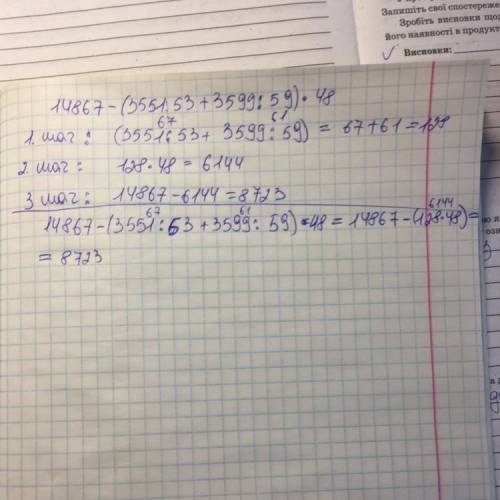 Запишіть свої спостереже
Зробіть висновки що
його наявності в продукт
✓ Висновки:
14867-(3551:53+3599:59)·48
67 61
1. шаг: (3551:53+3599:59) = 67+61=128
2 шаг: 128·48=6144
3 шаг: 14867-6144=8723
67 61 6144
14867-(3551:53+3599:59)·48=14867-(128·48)=
=8723